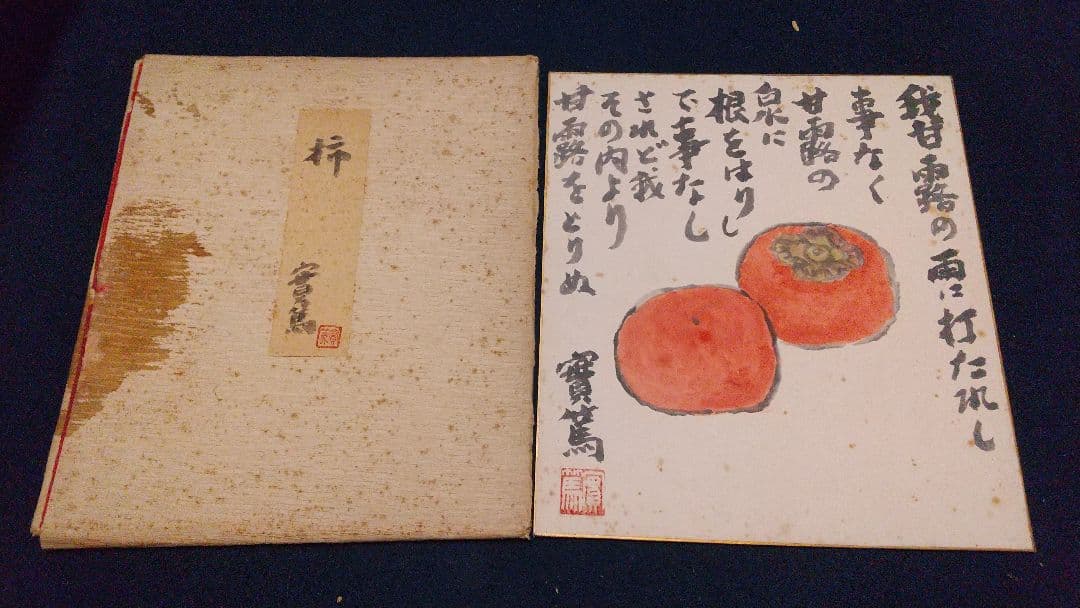 柿
實篤
我甘露の雨に打たれし
事なく
甘露の
泉に
根をはりし
で事なし
されど我
その内より
甘露をとりぬ
實篤
實篤